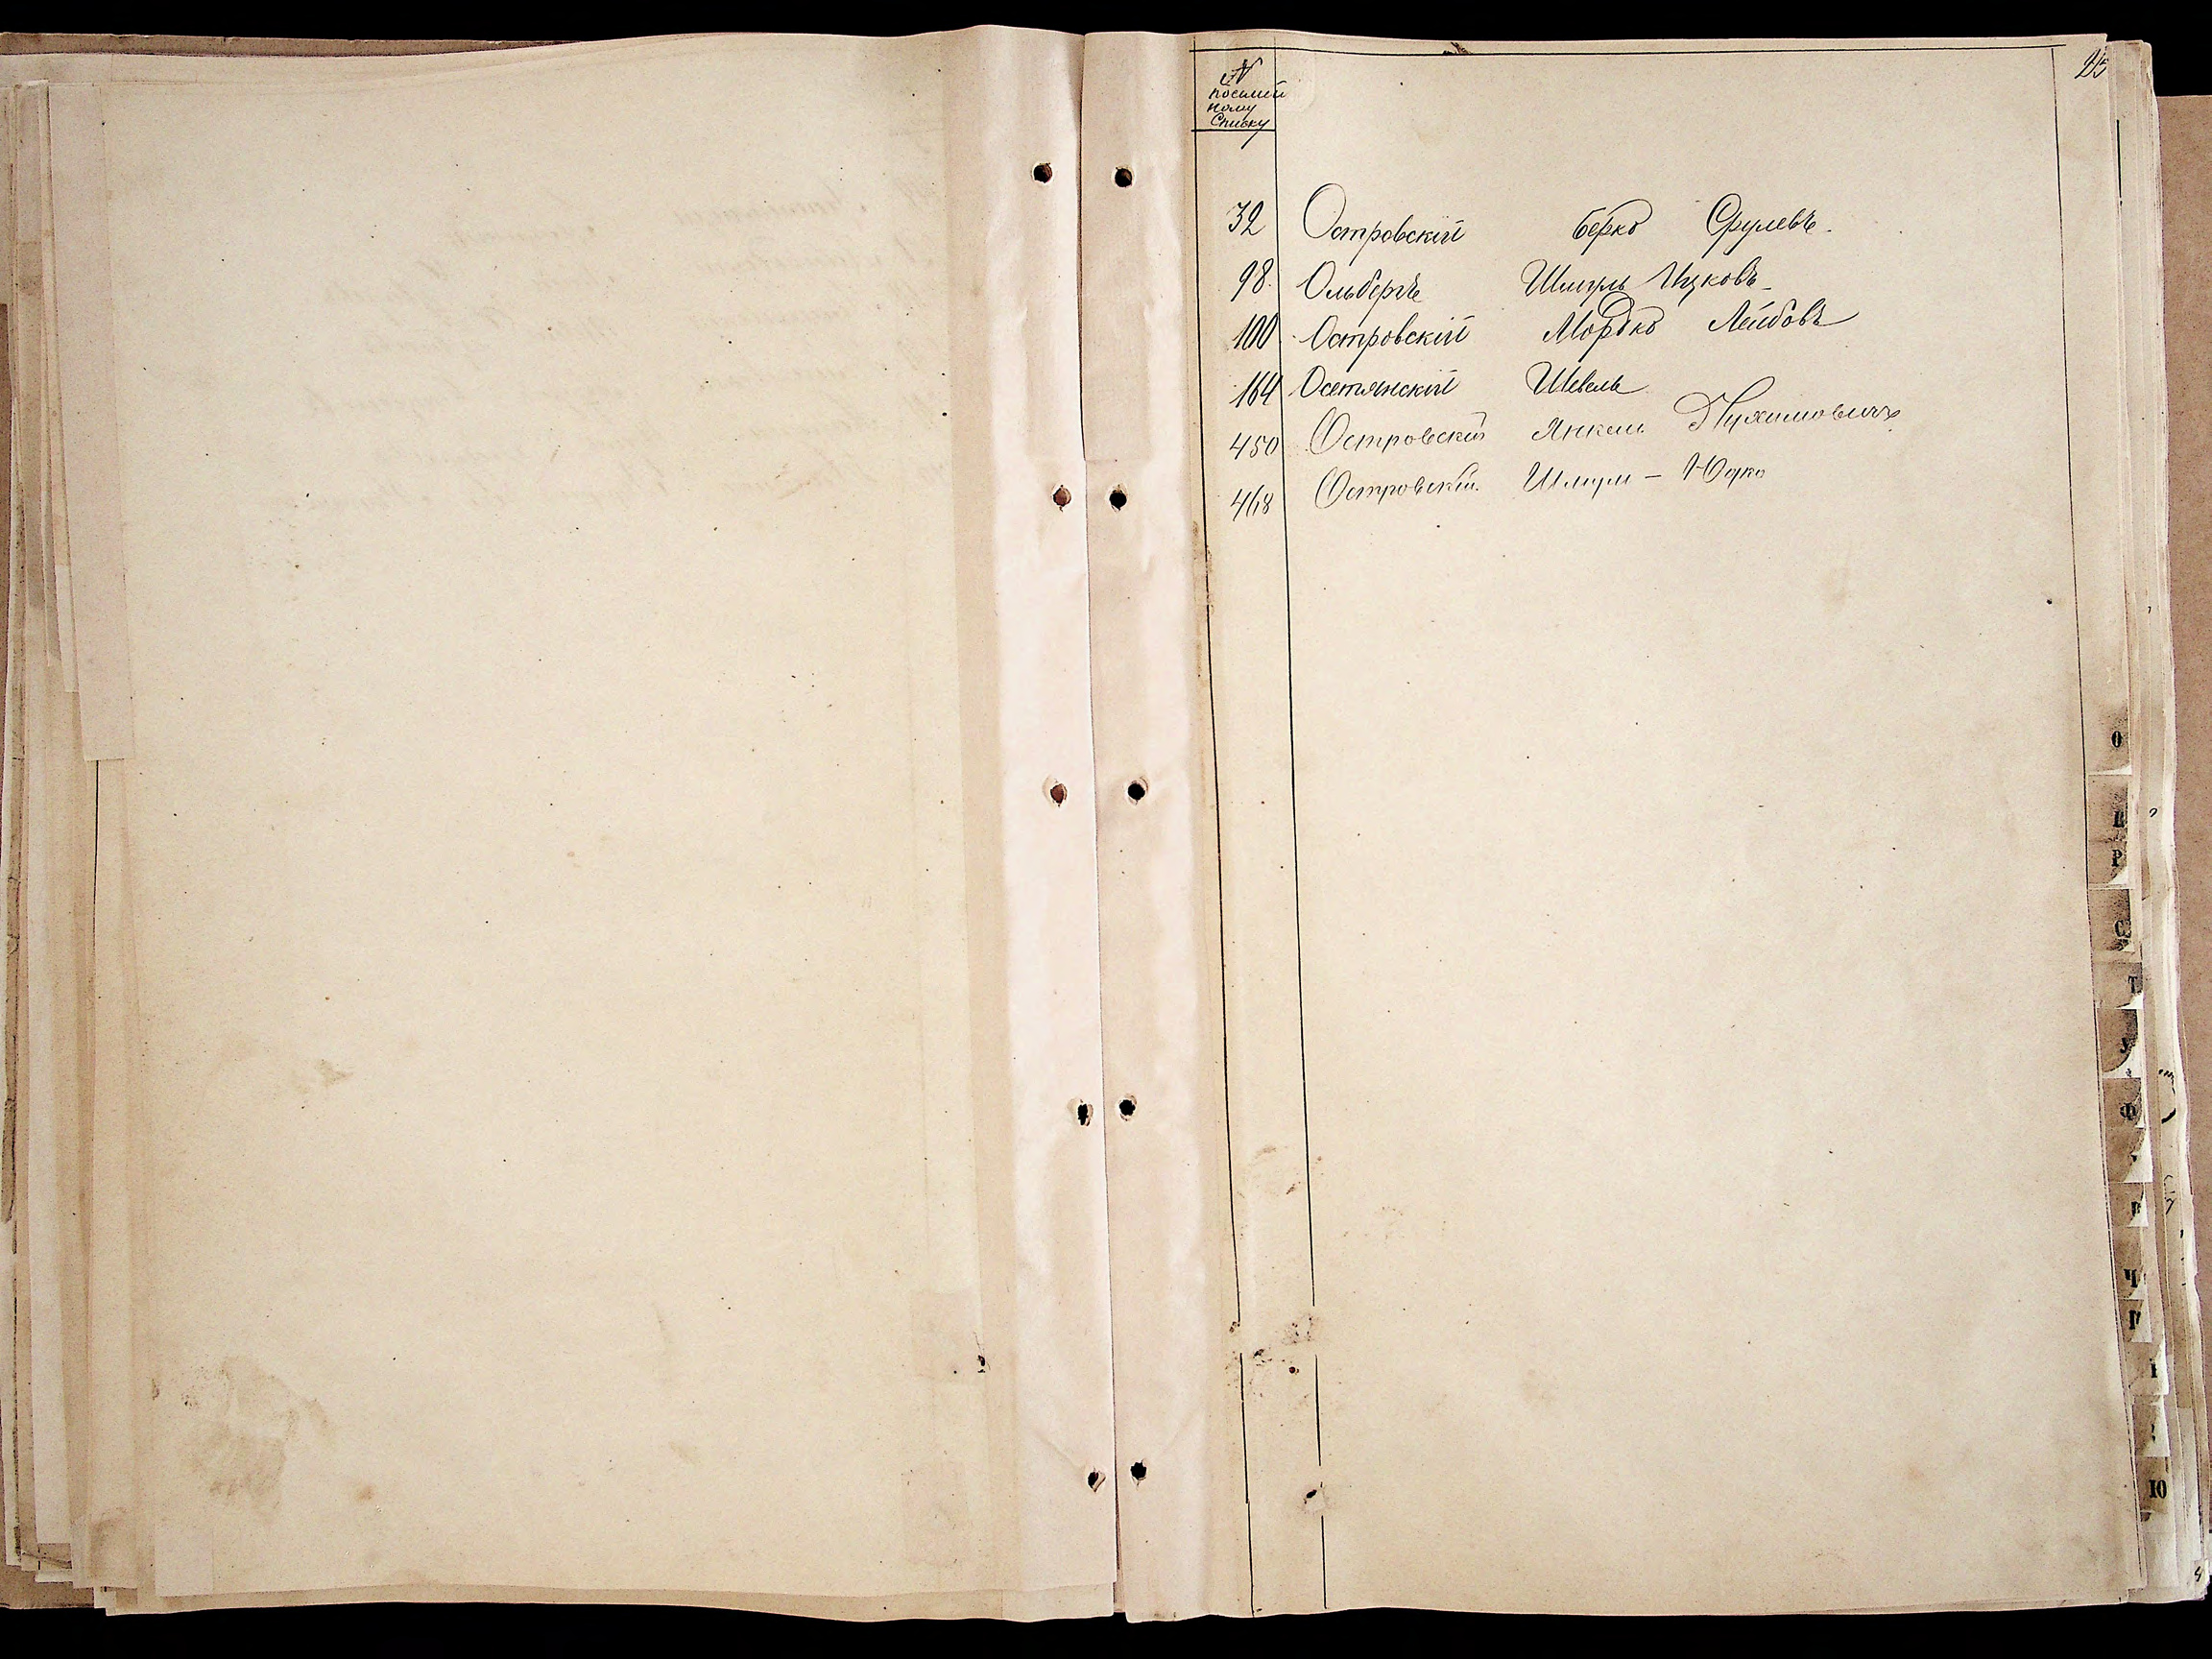 №
посемей
ному
Списку
25
32 Островскій Берко Срулевъ.
98. Ольбергъ Шмуль Ицковъ
100 Островскій Мордко Лейбовъ
164 Осетянскій Шевель
450 Островскій Янкель Нухимовичъ
468 Островскій Шмуль - Юдко
О
П
Р
С
Т
У
Ф
Ч
Ю